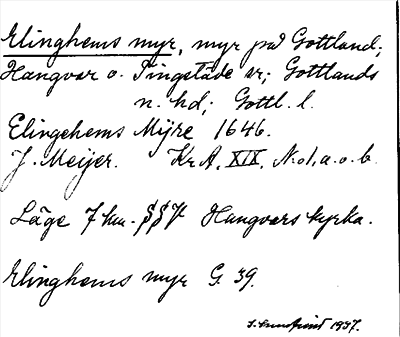 Elinghems myr, myr på Gottland;
Hangvar o. Tingstäde sr; Gottlands
n. hd; Gottl. l.
Elingehems Mÿre 1646.
J. Meijer. Kr A. XIX. N:o 1. a. o. b.
Läge 7 km. SSV Hangvars kyrka.
Elinghems myr G. 39.
1937.